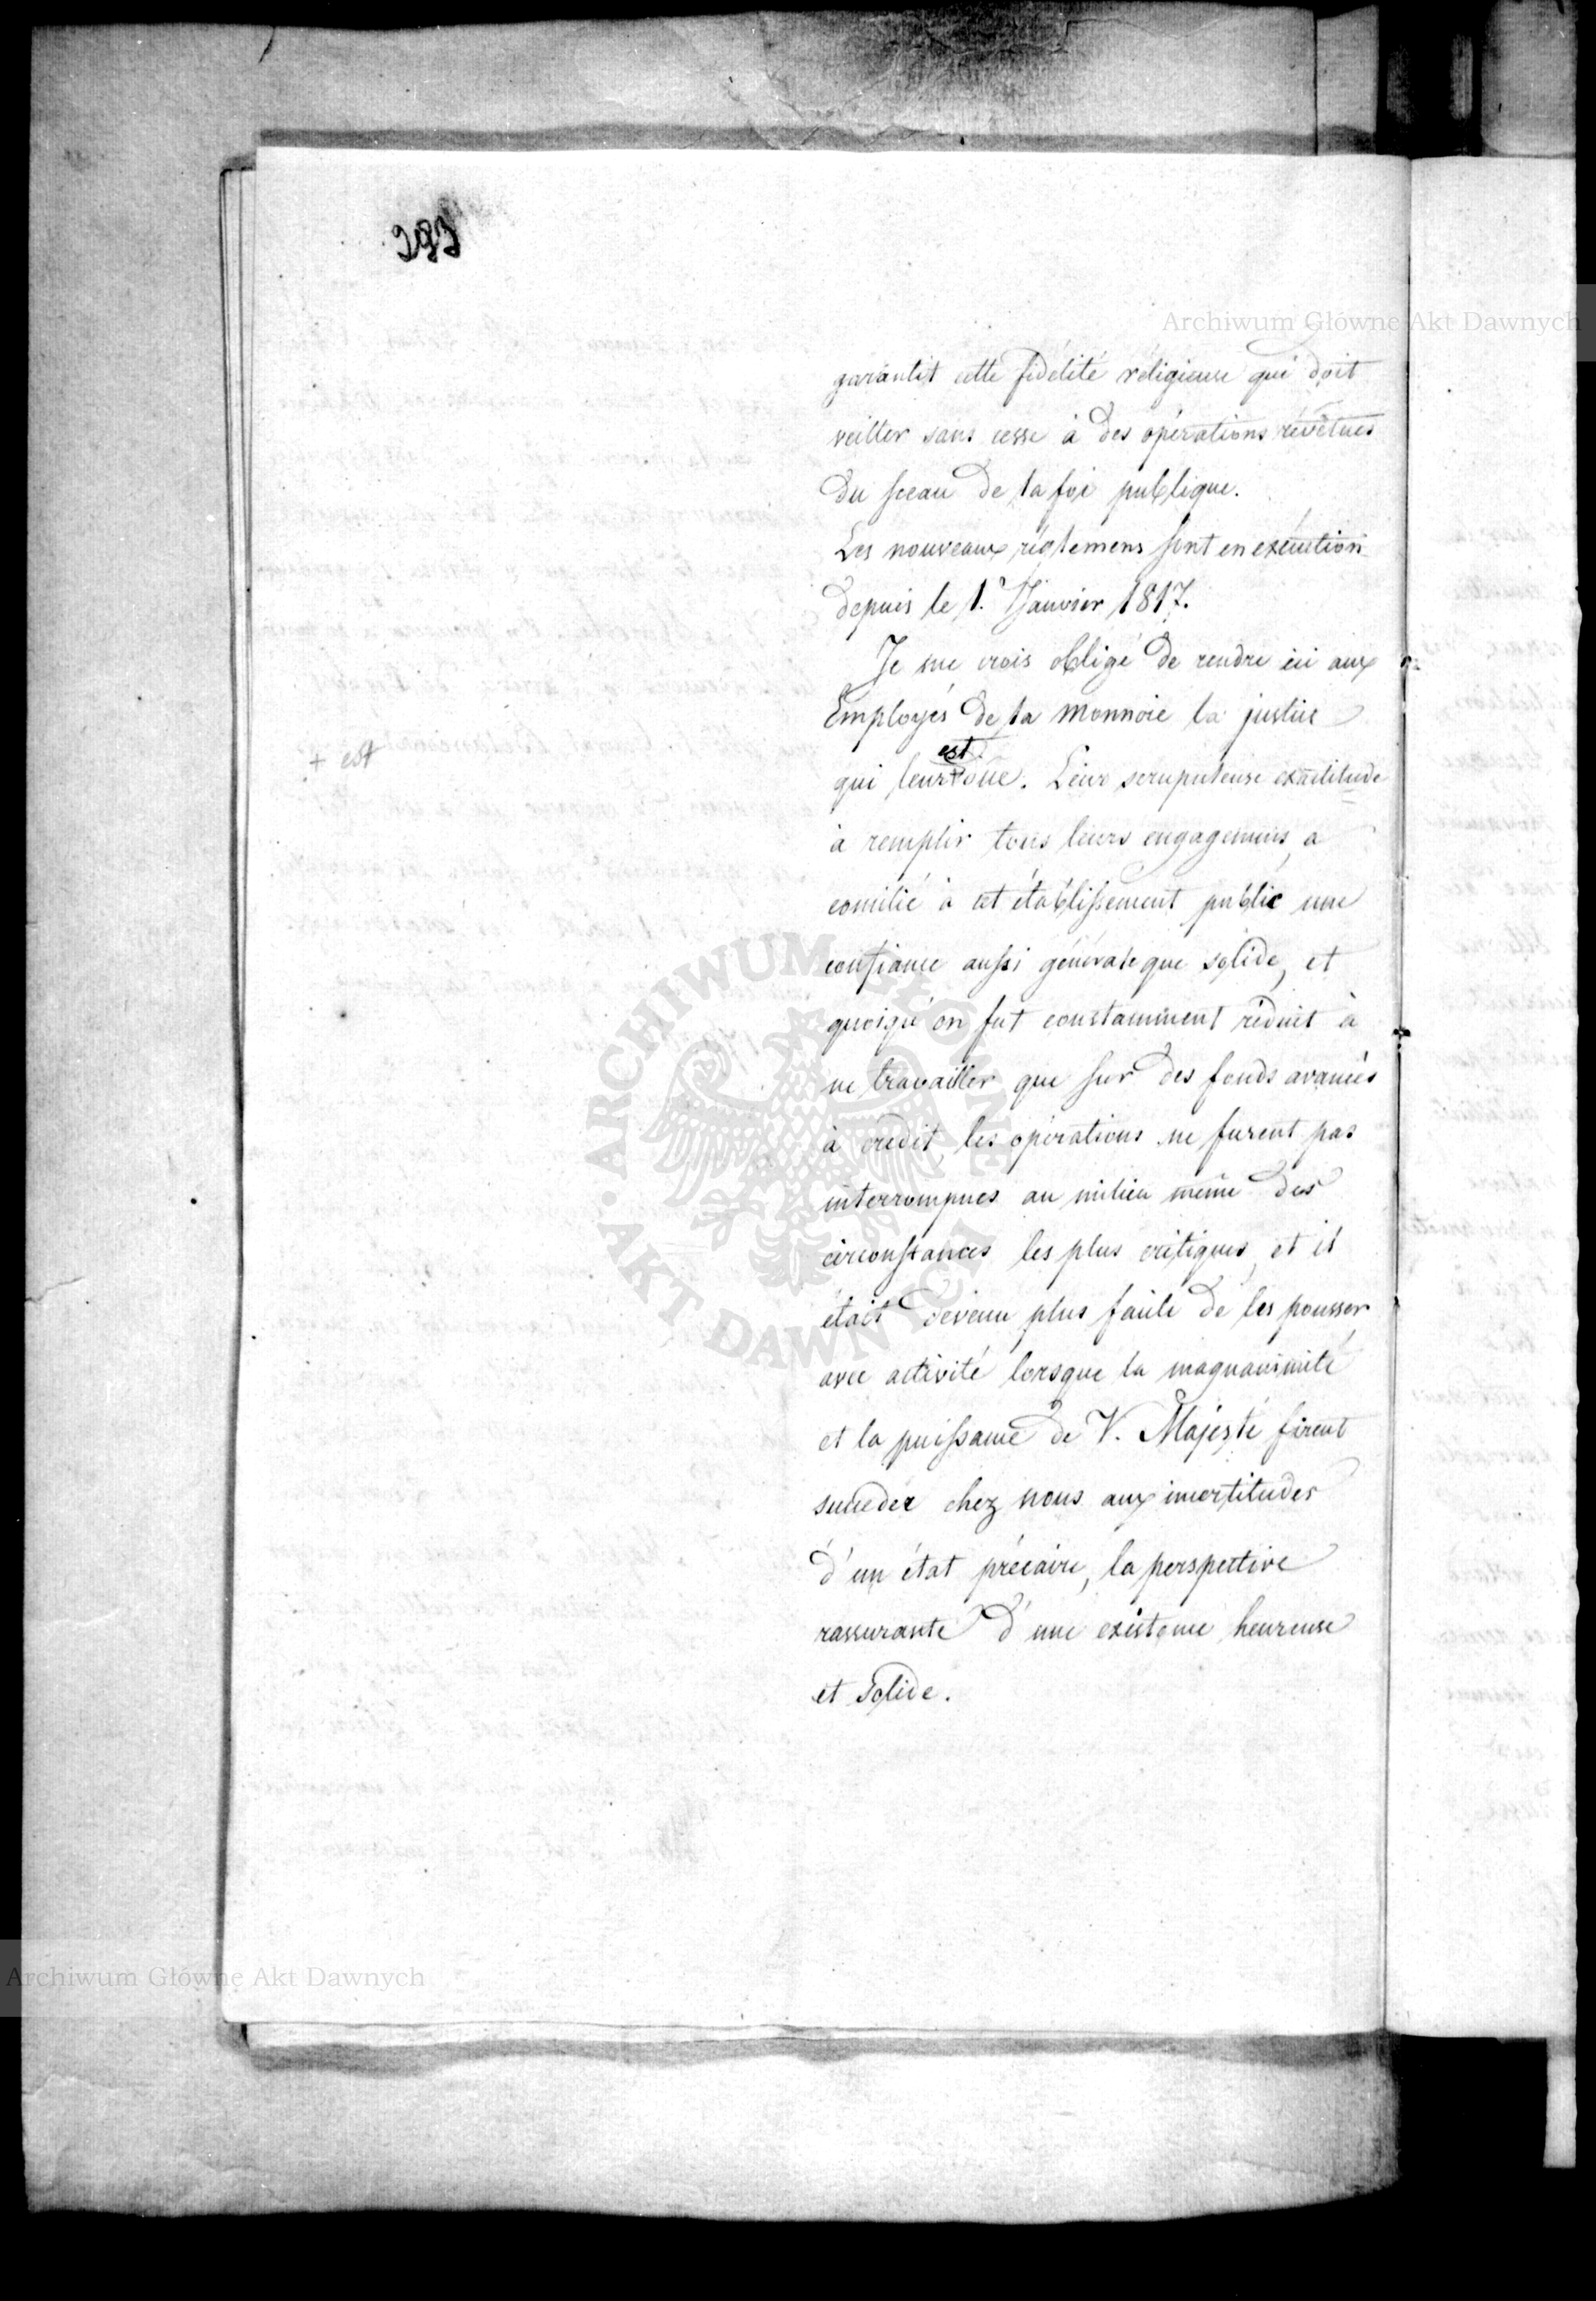 Archiwum Główne Akt Dawnych
garantit cette fidélité réligieuse qui doit
veiller sans cesse à des opérations révêtues
du sceau de la foi publique.
Les nouveaux réglemens sont en exécution
depuis le 1.r Janvier 1817.
Je me crois obligé de rendre ici aux
Employés de la Monnoie la justice
+ est
est
qui leur + due. Leur scrupuleuse exactitude
à remplir tous leurs engagemens, a
concilié à cet établissement public une
confiance aussi générale que solide, et
quoiqu'on fut constamment réduit à
ne travailler que sur des fonds avancés
à crédit, les opérations ne furent pas
interrompues au milieu même des
circonstances les plus critiques, et il
était devenu plus facile de les pousser
avec activité lorsque la magnanimité
et la puissance de V. Majesté firent
succeder chez nous aux incertitudes
d'un état précaire, la perspective
rassurante d'une existence heureuse
et solide.
ARCHIWUM GŁÓWNE AKT DAWNYCH
Archiwum Główne Akt Dawnych